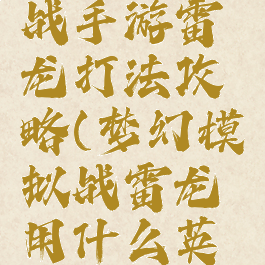 战手游雷
龙打法攻
略(梦幻模
拟战雷龙
用什么英